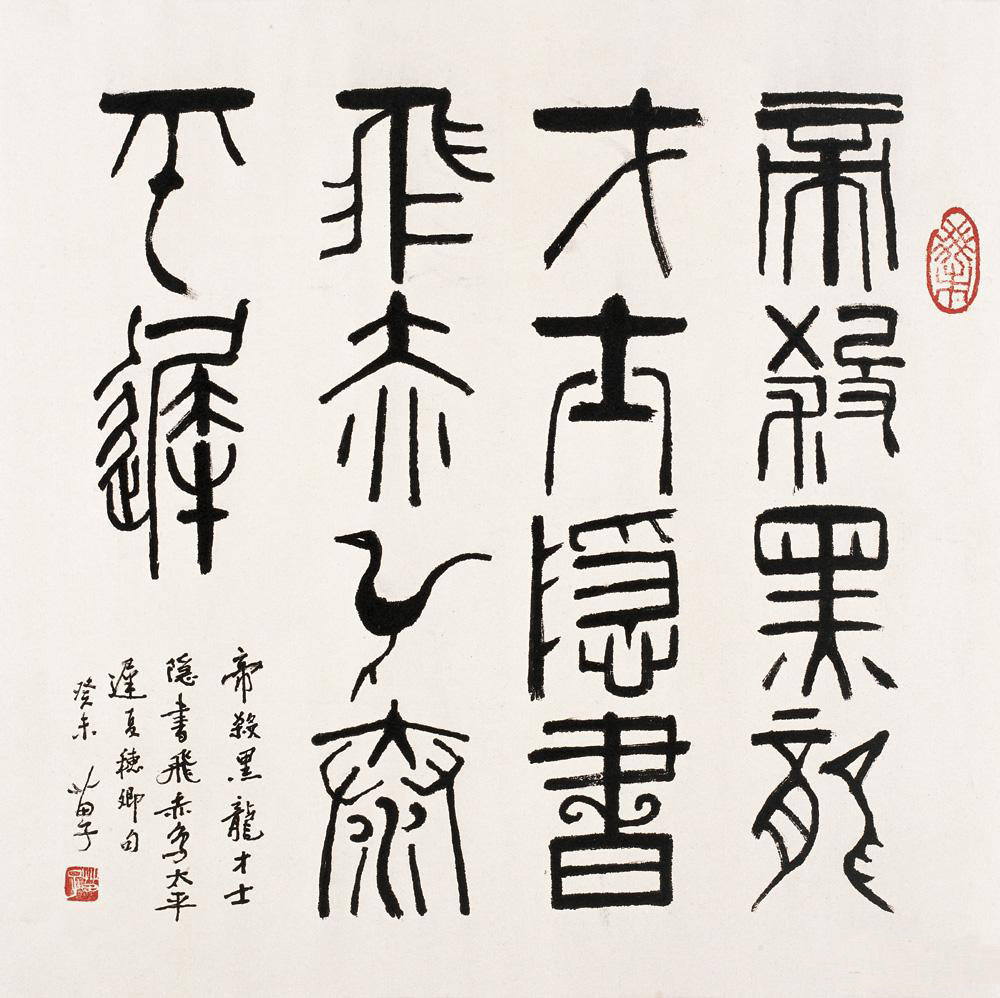 帝殺黑龍
才士隱書
飛赤鳥泰
平遲
帝殺黑龍才士
隱書飛赤鳥太平
遲夏穗卿句
癸未 苗子